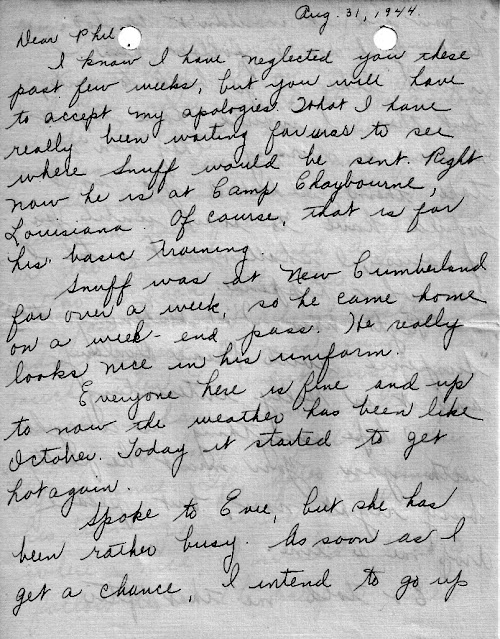 Aug. 31, 1944.
Dear Phil
I know I have neglected you these
past few weeks, but you will have
to accept my apologies. What I have
really been waiting for was to see
where Snuff would be sent. Right
now he is at Camp Claybourne,
Louisiana. Of course, that is for
his basic training.
Snuff was at New Cumberland
for over a week, so he came home
on a week-end pass. He really
looks nice in his uniform.
Everyone here is fine and up
to now the weather has been like
October. Today it started to get
hot again.
Spoke to Evie, but she has
been rather busy. As soon as I
get a chance, I intend to go up